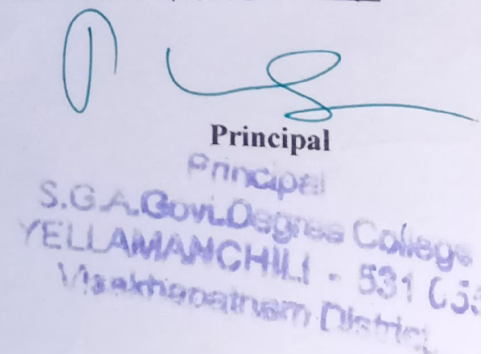 Principal
Principal
S.G.A.Govt.Degree College
YELLAMANCHILI - 531 055
Visakhapatnam District